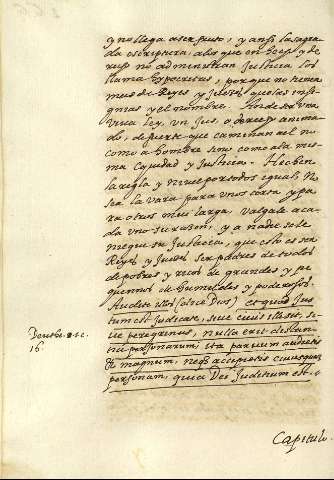 y no llega a ser justo, y ansi la sagra
da escriptura, a los que en
no administran Justicia los
llama hypocritas, porque no tienen
mas de Reyes y Jueces, que las insi
gnias y el nombre. An de ser una
viva ley, un Jus, o derecho anima
do, de suerte que caminen a el no
como a hombre sino como a la mis
ma equidad y Justicia. Hechen
la regla y nivel por todos igual, No
sea la vara para unos corta y pa
ra otros muy larga. Valgale a ca
da uno su raçon, y a nadie se le
niegue su Justicia, que esto es ser
Reyes y Jueces ser padres de todos
de pobres y ricos de grandes y pe
quennos de humildes y poderosos.
Audite illos (dice Dios) et quod jus
tum est judicate, sive civis ille sit, si
ve peregrinus, nulla erit distan
tia personarum, ita parvum audietis
et magnum, neqз accipietis cuiusquam
personam, quia Dei Juditium est.
16.
Capitulo.